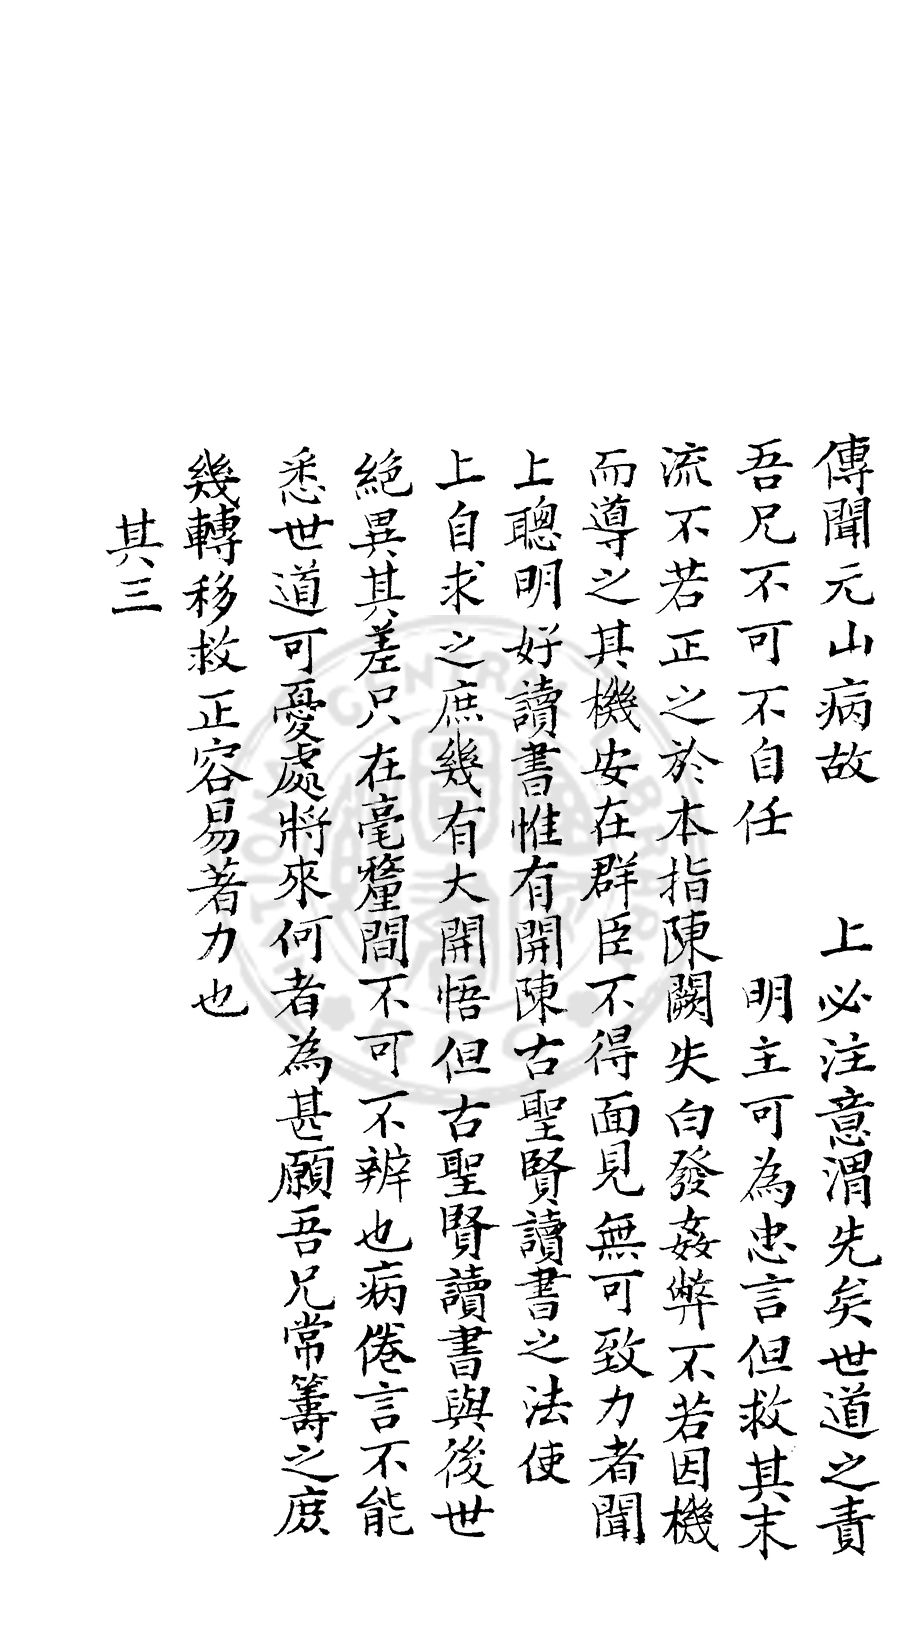 傳聞元山病故　　上必注意渭先矣世道之責
吾兄不可不自任　　明主可為忠言但救其末
流不若正之於本指陳闕失白發姦弊不若因機
而導之其機安在群臣不得面見無可致力者聞
上聰明好讀書惟有開陳古聖賢讀書之法使
上自求之庶幾有大開悟但古聖賢讀書與後世
絕異其差只在毫釐間不可不辨也病倦言不能
悉世道可憂處將來何者為甚願吾兄常籌之庶
幾轉移救正容易著力也
其三
NATIONAL CENTRAL LIBRARY